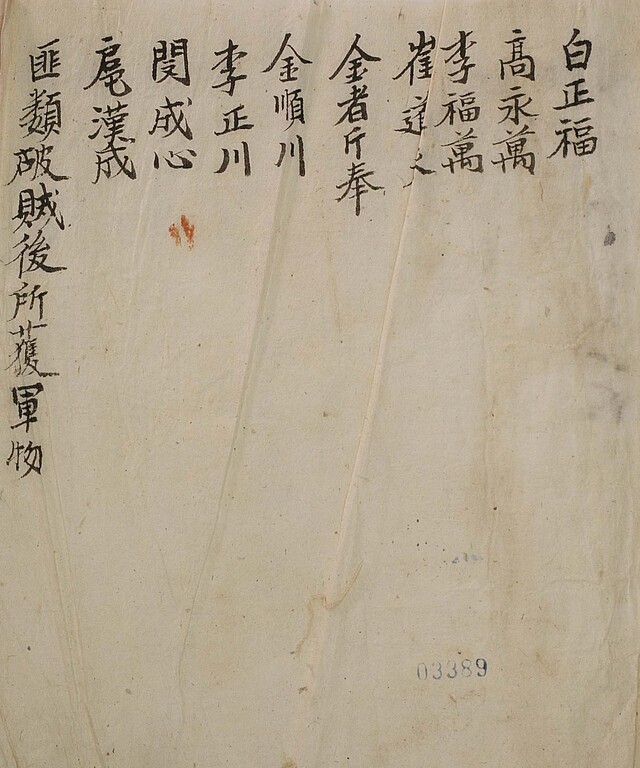 白正福
高永萬
李福萬
崔達
金者斤奉
金順川
李正川
閔成心
扈漢成
匪類破賊後所獲軍物
03389